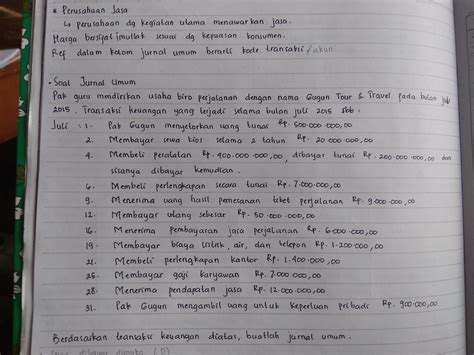 * Perusahaan Jasa
↳ perusahaan dg kegiatan utama menawarkan jasa.
Harga bersifat imullak sesuai dg kepuasan konsumen.
Ref dalam kolom jurnal umum berarti kode transaksi / akun
• Soal Jurnal Umum
Pak guru mendirikan usaha biro perjalanan dengan nama Gugun Tour & Travel pada bulan juli
2015. Transaksi keuangan yang terjadi selama bulan juli 2015 sbb:
Juli : 1. Pak Gugun menyetorkan uang tunai Rp. 600.000.000,00
2. Membayar sewa kios selama 2 tahun Rp. 20.000.000,00
4. Membeli peralatan Rp. 400.000.000,00, dibayar tunai Rp. 200.000.000,00 dan
sisanya dibayar kemudian.
6. Membeli perlengkapan secara tunai Rp. 7.000.000,00
9. Menerima uang hasil pemesanan tiket perjalanan Rp. 9.000.000,00
12. Membayar utang sebesar Rp. 50.000.000,00
16. Menerima pembayaran jasa perjalanan Rp. 6.000.000,00
19. Membayar biaya listrik, air, dan telepon Rp. 1.200.000,00
21. Membeli perlengkapan kantor Rp. 1.400.000,00
25. Membayar gaji karyawan Rp. 7.000.000,00
28. Menerima pendapatan jasa Rp. 12.000.000,00
31. Pak Gugun mengambil uang untuk keperluan pribadi Rp. 900.000,00
Berdasarkan transaksi keuangan diatas, buatlah jurnal umum.